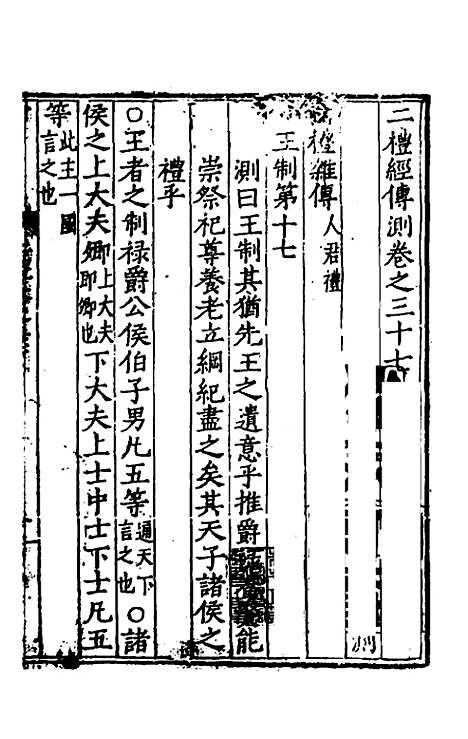 二禮經傳測卷之三十七
禮雜傳人君禮
王制第十七
測曰王制其猶先王之遺意乎推爵能
崇祭祀尊養老立綱紀盡之矣其天子諸侯之
禮乎
○王者之制祿爵公侯伯子男凡五等通天下言之也○諸
侯之上大夫卿即上大夫即卿也下大夫上士中士下士凡五
等此主一國言之也